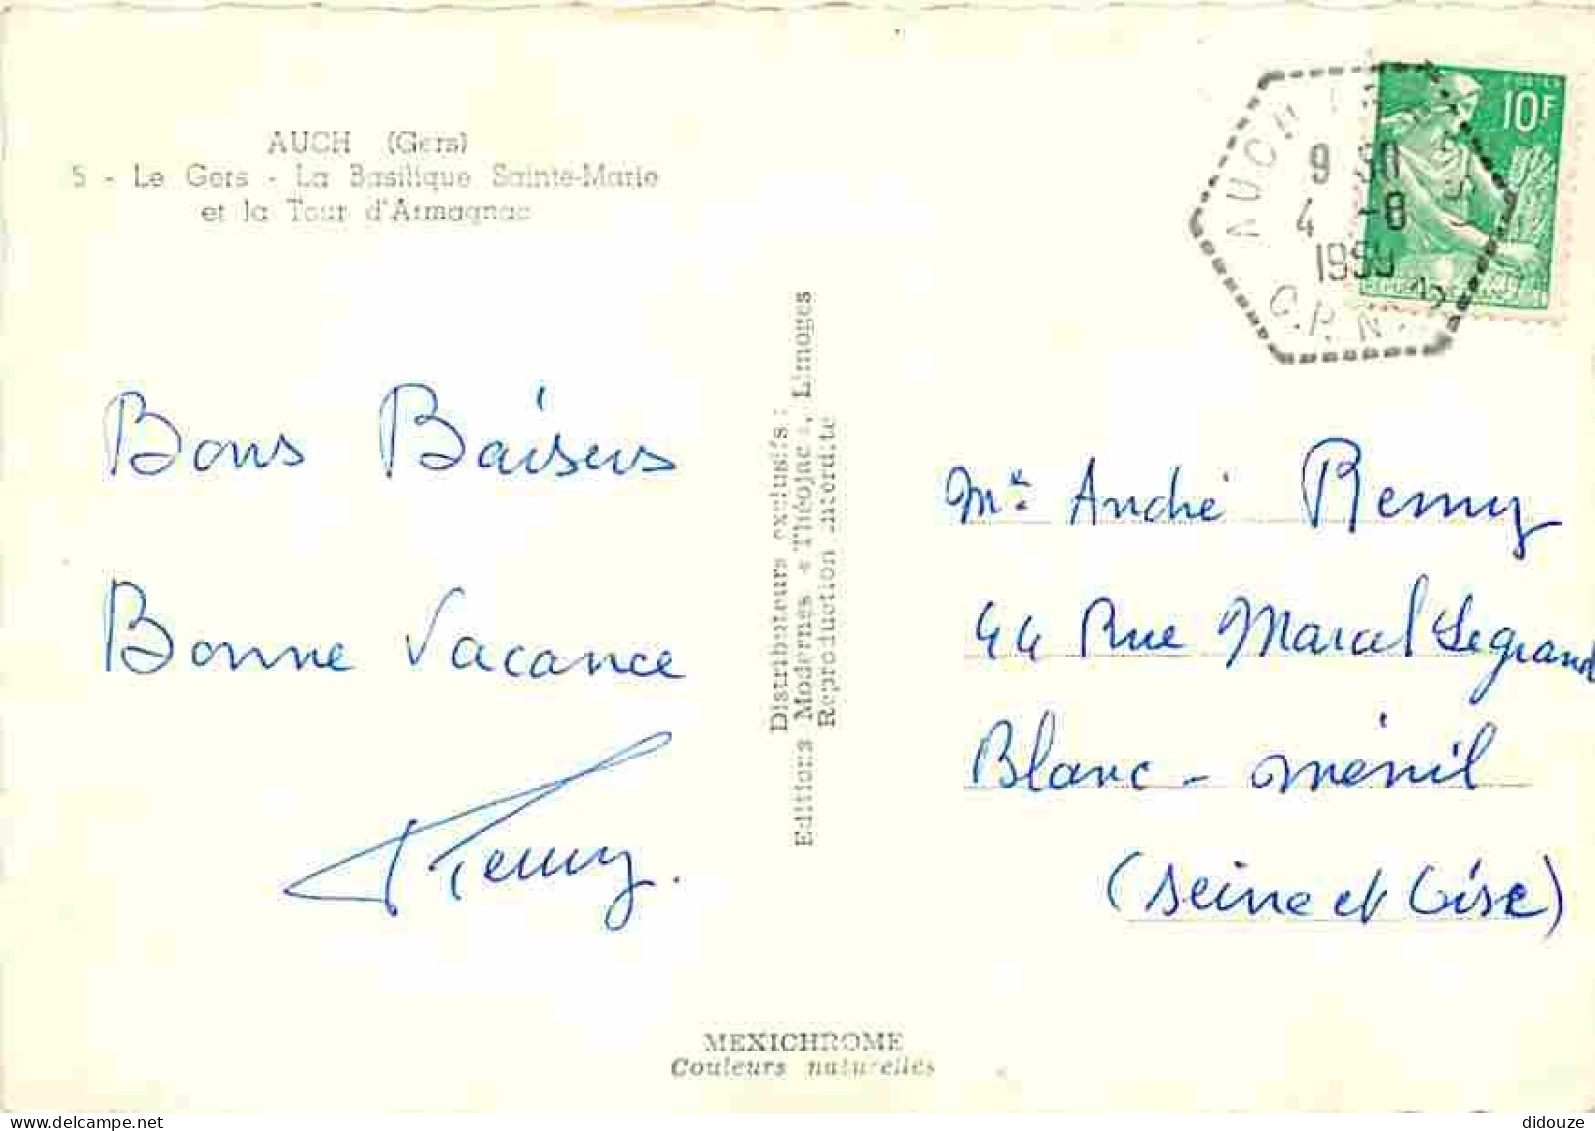 AUCH (Gers)
5 - Le Gers - La Basilique Sainte-Marie
et la Tour d'Armagnac
Bons Baisers
Bonne Vacance
Remy.
Distributeurs exclusifs :
Editions Modernes « Théojac », Limoges
Reproduction interdite
10F
POSTES
AUCH
9
4 -8
1959
C.P. N° 
Mr André Remy
44 Rue Marcel Legrand
Blanc-ménil
(Seine et Oise)
MEXICHROME
Couleurs naturelles
delcampe.net
didouze